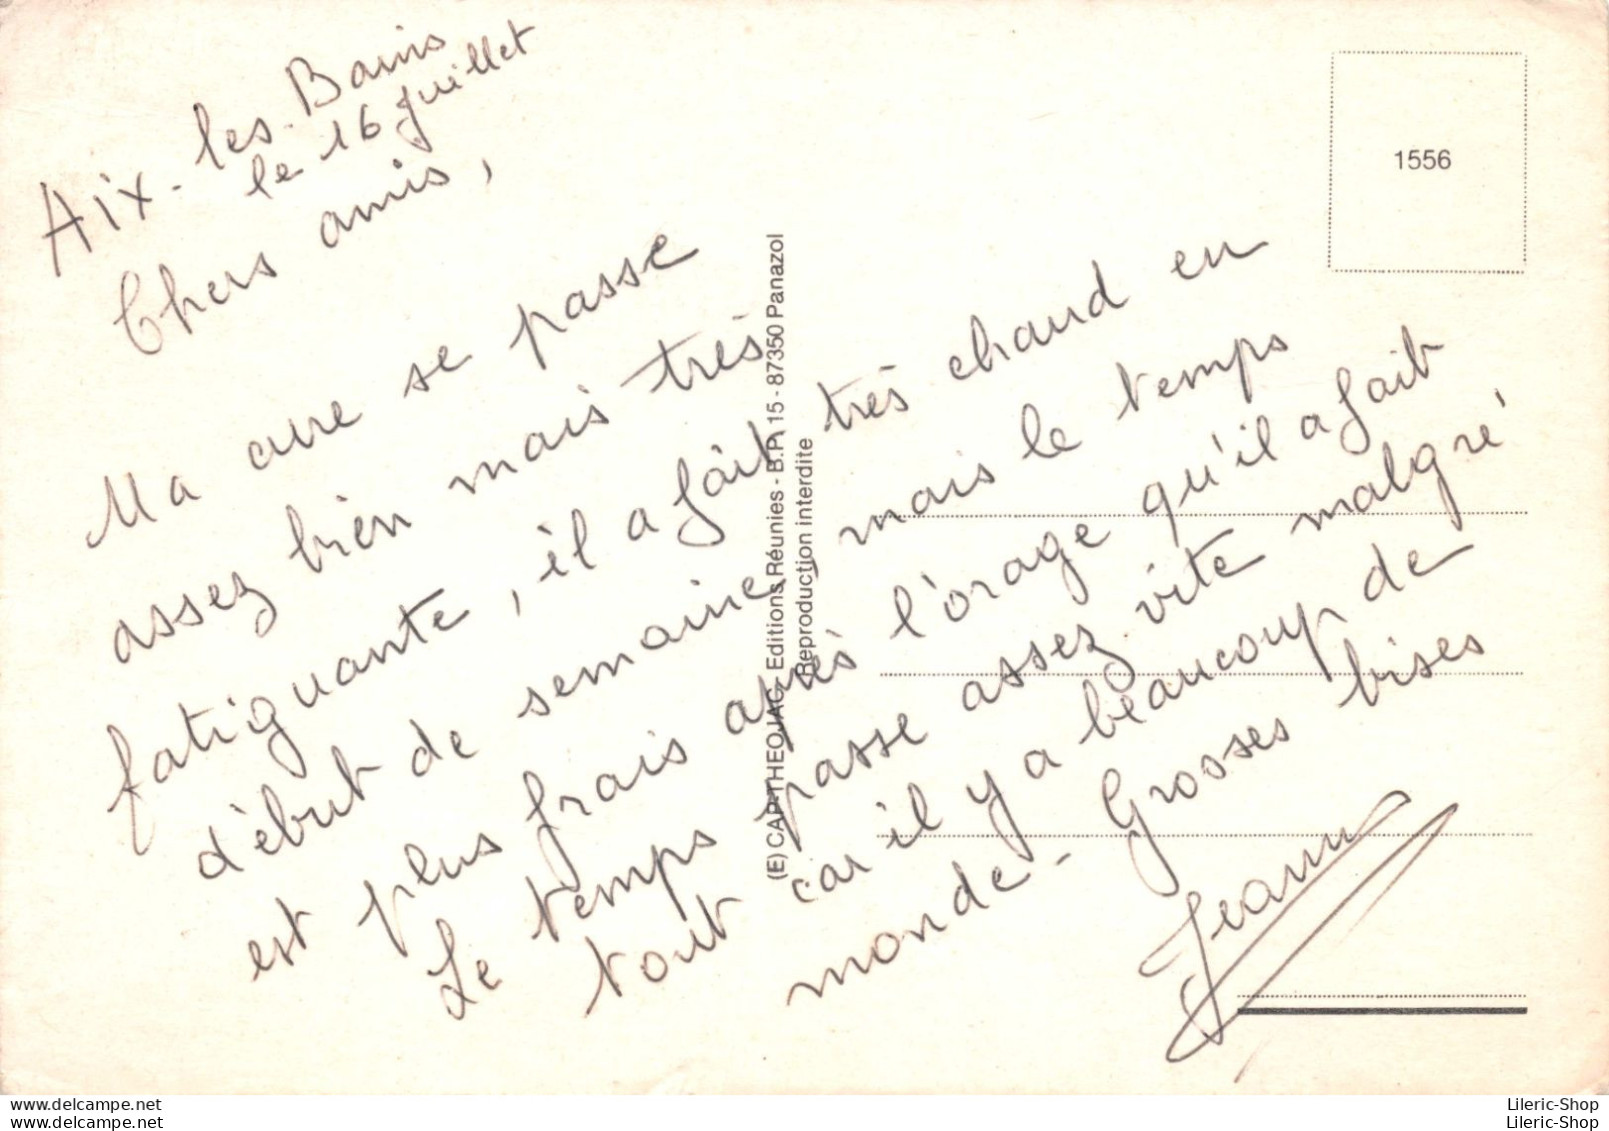 Aix-les-Bains
le 16 Juillet
Chers amis,
Ma cure se passe
assez bien mais très
fatiguante, il a fait très chaud en
début de semaine, mais le temps
est plus frais après l'orage qu'il a fait
Le temps passe assez vite malgré
tout car il y a beaucoup de
monde - Grosses bises
1556
(E) CAP-THEOJAC - Editions Réunies - B.P. 15 - 87350 Panazol
Reproduction interdite
www.delcampe.net
Lileric-Shop
www.delcampe.net
Lileric-Shop